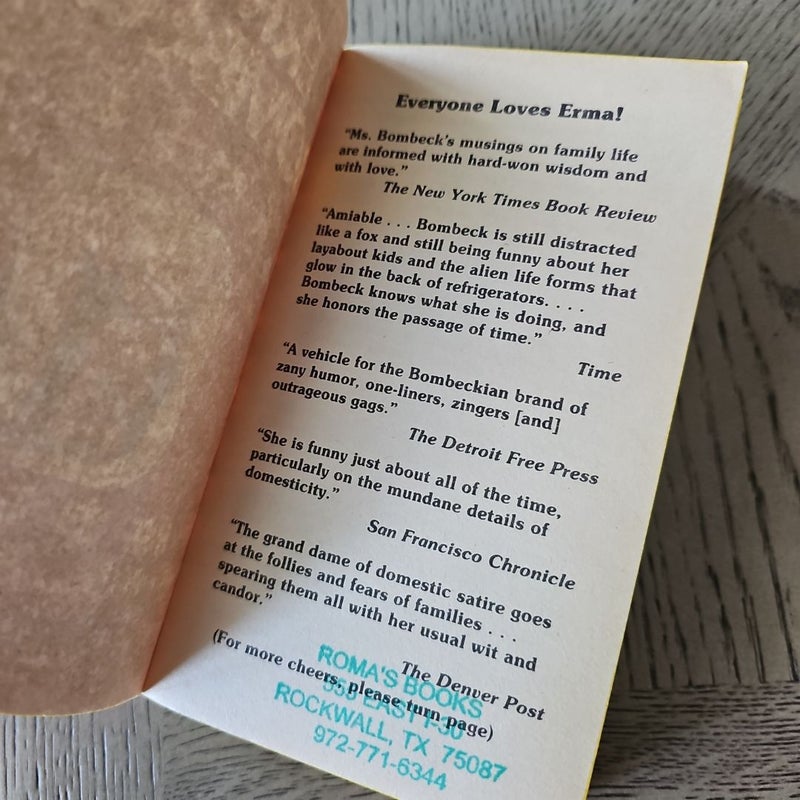 Everyone Loves Erma!
“Ms. Bombeck’s musings on family life
are informed with hard-won wisdom and
with love.”
The New York Times Book Review
“Amiable . . . Bombeck is still distracted
like a fox and still being funny about her
layabout kids and the alien life forms that
glow in the back of refrigerators. . . .
Bombeck knows what she is doing, and
she honors the passage of time.”
Time
“A vehicle for the Bombeckian brand of
zany humor, one-liners, zingers [and]
outrageous gags.”
The Detroit Free Press
“She is funny just about all of the time,
particularly on the mundane details of
domesticity.”
San Francisco Chronicle
“The grand dame of domestic satire goes
at the follies and fears of families . . .
spearing them all with her usual wit and
candor.”
The Denver Post
(For more cheers, please turn page)
ROMA'S BOOKS
EAST I-30
ROCKWALL, TX 75087
972-771-6344